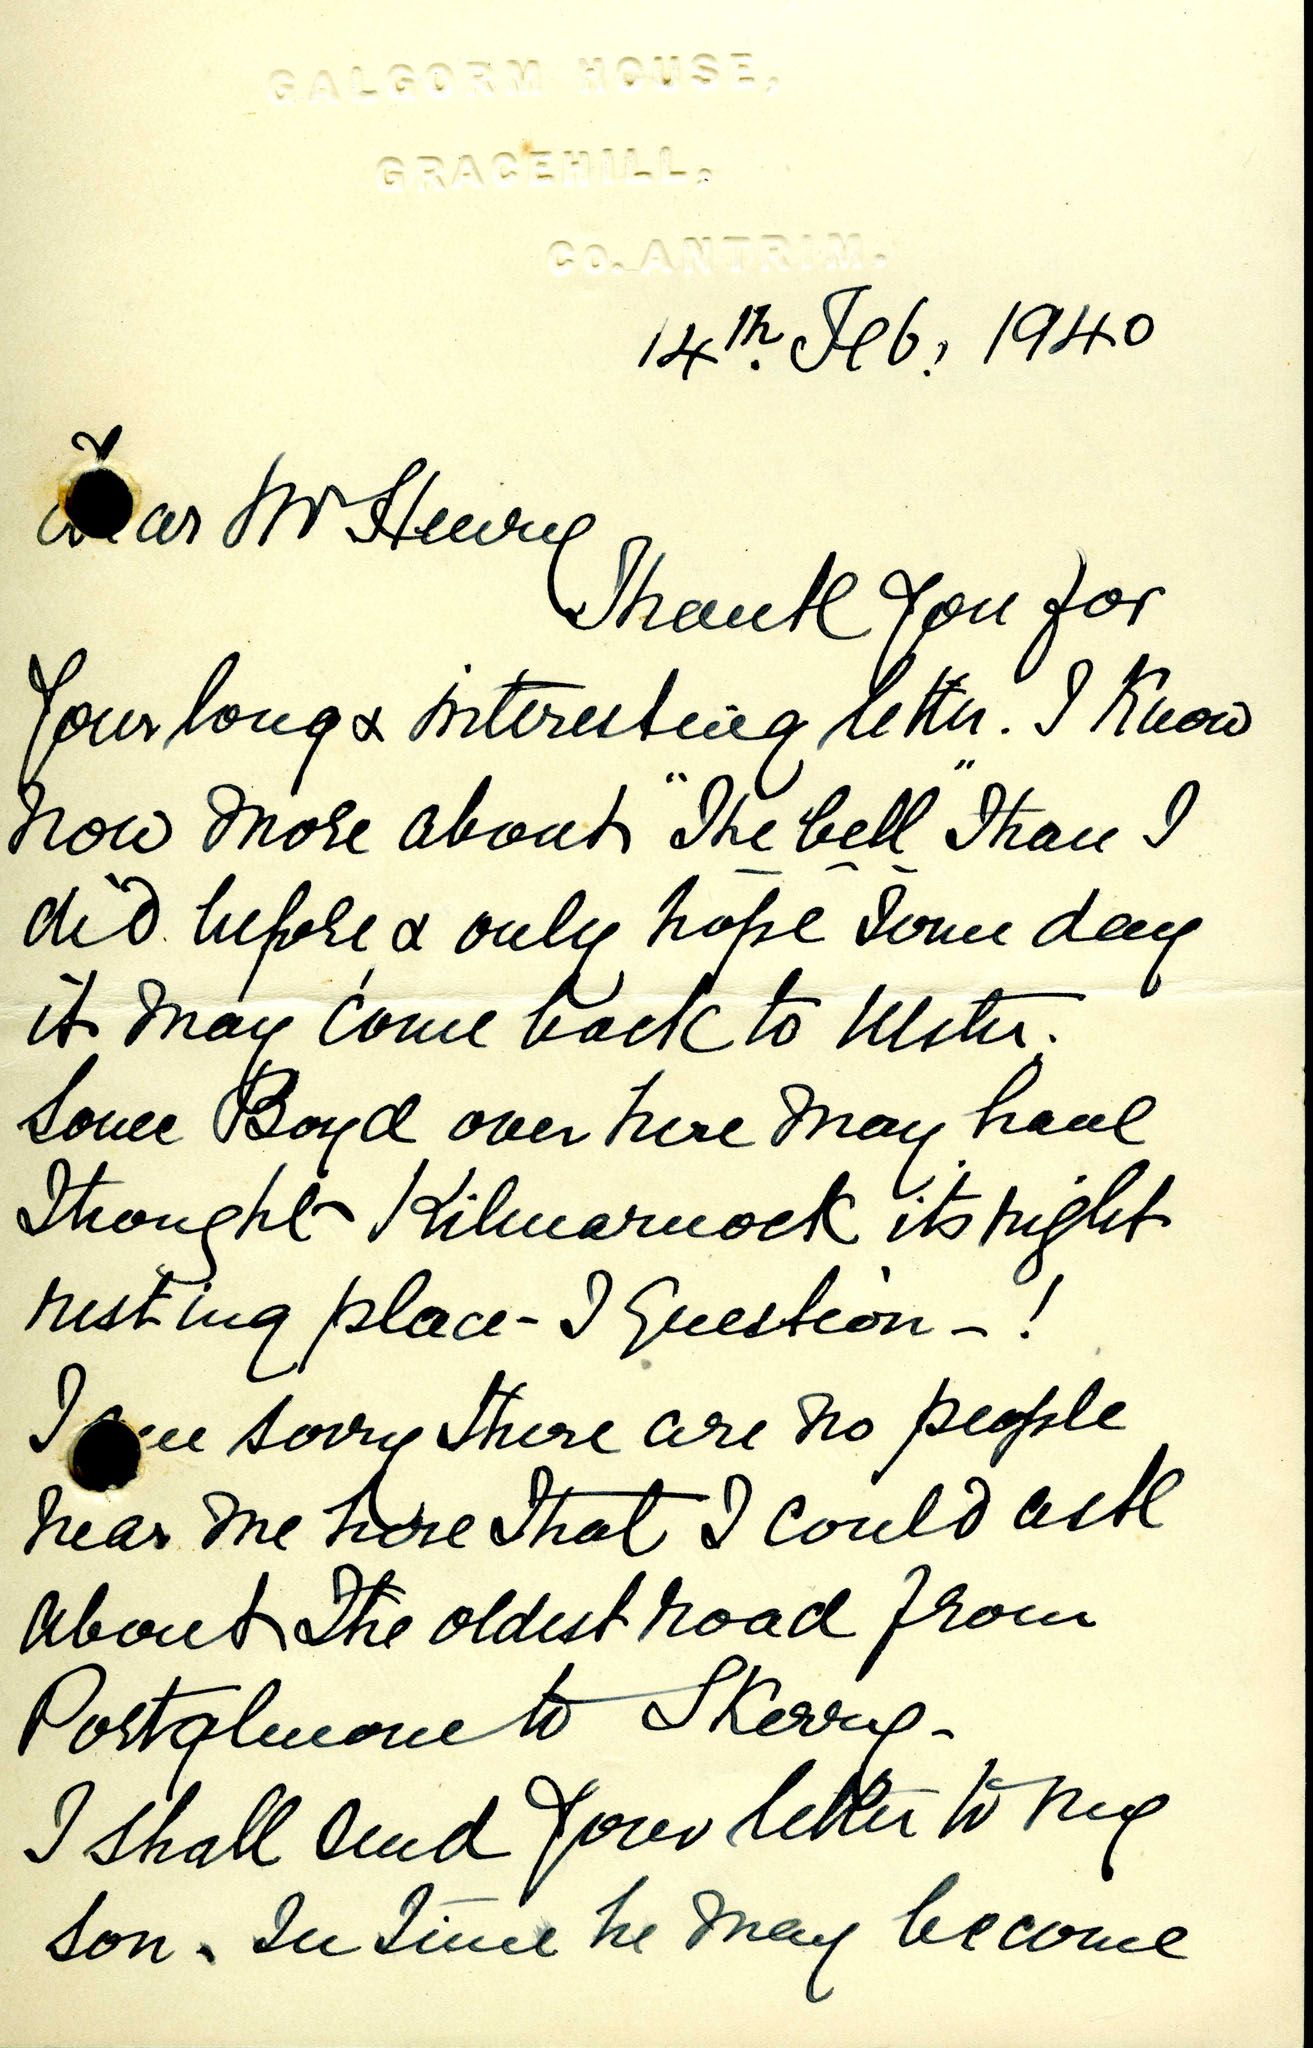 GALGORM HOUSE,
GRACEHILL,
CO. ANTRIM.
14th. Feb, 1940
Dear Mr Henry
Thank you for
your long & interesting letter. I know
now more about "the bell" than I
did before & only hope some day
it may come back to Ulster.
Some Boyd over here may have
thought Kilmarnock its right
resting place - I question - !
I am sorry there are no people
near me here that I could ask
about the oldest road from
Portglenone to Skerry -
I shall send your letter to my
son. In time he may become